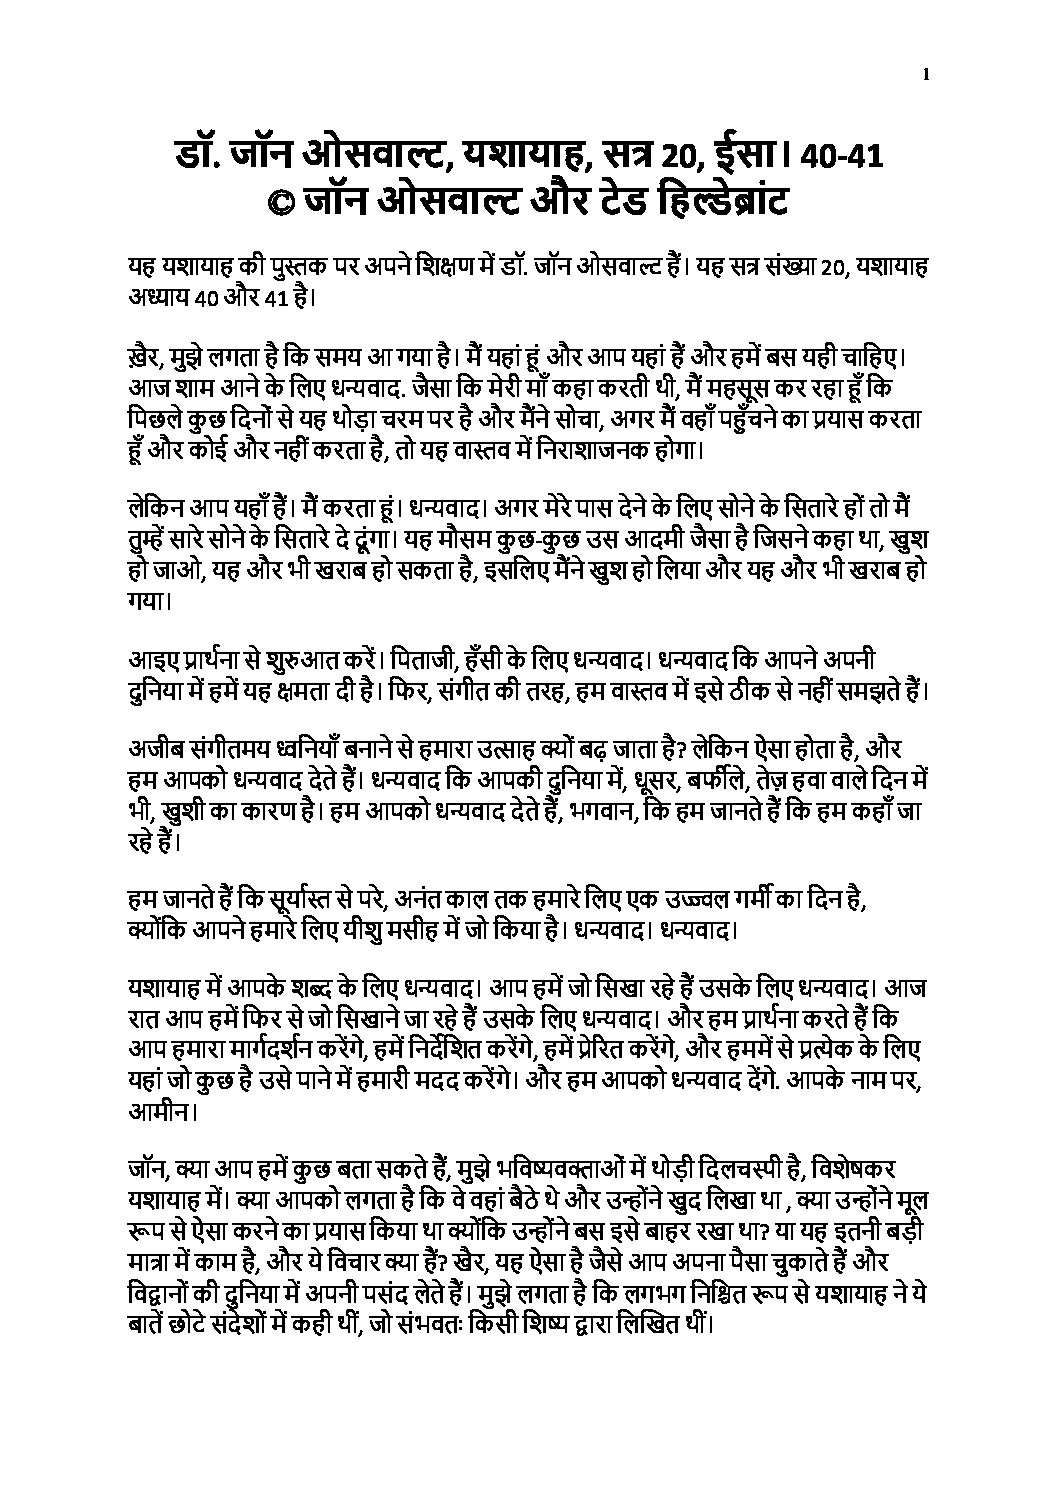 1
डॉ. जॉन ओसवाल्ट, यशायाह, सत्र 20, ईसा। 40-41
© जॉन ओसवाल्ट और टेड हिल्डेब्रांट
यह यशायाह की पुस्तक पर अपने शिक्षण में डॉ. जॉन ओसवाल्ट हैं। यह सत्र संख्या 20, यशायाह
अध्याय 40 और 41 है।
ख़ैर, मुझे लगता है कि समय आ गया है। मैं यहां हूं और आप यहां हैं और हमें बस यही चाहिए।
आज शाम आने के लिए धन्यवाद. जैसा कि मेरी माँ कहा करती थी, मैं महसूस कर रहा हूँ कि
पिछले कुछ दिनों से यह थोड़ा चरम पर है और मैंने सोचा, अगर मैं वहाँ पहुँचने का प्रयास करता
हूँ और कोई और नहीं करता है, तो यह वास्तव में निराशाजनक होगा।
लेकिन आप यहाँ हैं। मैं करता हूं। धन्यवाद। अगर मेरे पास देने के लिए सोने के सितारे हों तो मैं
तुम्हें सारे सोने के सितारे दे दूंगा। यह मौसम कुछ-कुछ उस आदमी जैसा है जिसने कहा था, खुश
हो जाओ, यह और भी खराब हो सकता है, इसलिए मैंने खुश हो लिया और यह और भी खराब हो
गया।
आइए प्रार्थना से शुरुआत करें। पिताजी, हँसी के लिए धन्यवाद। धन्यवाद कि आपने अपनी
दुनिया में हमें यह क्षमता दी है। फिर, संगीत की तरह, हम वास्तव में इसे ठीक से नहीं समझते हैं।
अजीब संगीतमय ध्वनियाँ बनाने से हमारा उत्साह क्यों बढ़ जाता है? लेकिन ऐसा होता है, और
हम आपको धन्यवाद देते हैं। धन्यवाद कि आपकी दुनिया में, धूसर, बर्फीले, तेज़ हवा वाले दिन में
भी, खुशी का कारण है। हम आपको धन्यवाद देते हैं, भगवान, कि हम जानते हैं कि हम कहाँ जा
रहे हैं।
हम जानते हैं कि सूर्यास्त से परे, अनंत काल तक हमारे लिए एक उज्ज्वल गर्मी का दिन है,
क्योंकि आपने हमारे लिए यीशु मसीह में जो किया है। धन्यवाद। धन्यवाद।
यशायाह में आपके शब्द के लिए धन्यवाद। आप हमें जो सिखा रहे हैं उसके लिए धन्यवाद। आज
रात आप हमें फिर से जो सिखाने जा रहे हैं उसके लिए धन्यवाद। और हम प्रार्थना करते हैं कि
आप हमारा मार्गदर्शन करेंगे, हमें निर्देशित करेंगे, हमें प्रेरित करेंगे, और हममें से प्रत्येक के लिए
यहां जो कुछ है उसे पाने में हमारी मदद करेंगे। और हम आपको धन्यवाद देंगे. आपके नाम पर,
आमीन।
जॉन, क्या आप हमें कुछ बता सकते हैं, मुझे भविष्यवक्ताओं में थोड़ी दिलचस्पी है, विशेषकर
यशायाह में। क्या आपको लगता है कि वे वहां बैठे थे और उन्होंने खुद लिखा था , क्या उन्होंने मूल
रूप से ऐसा करने का प्रयास किया था क्योंकि उन्होंने बस इसे बाहर रखा था? या यह इतनी बड़ी
मात्रा में काम है, और ये विचार क्या हैं? खैर, यह ऐसा है जैसे आप अपना पैसा चुकाते हैं और
विद्वानों की दुनिया में अपनी पसंद लेते हैं। मुझे लगता है कि लगभग निश्चित रूप से यशायाह ने ये
बातें छोटे संदेशों में कही थीं, जो संभवतः किसी शिष्य द्वारा लिखित थीं।